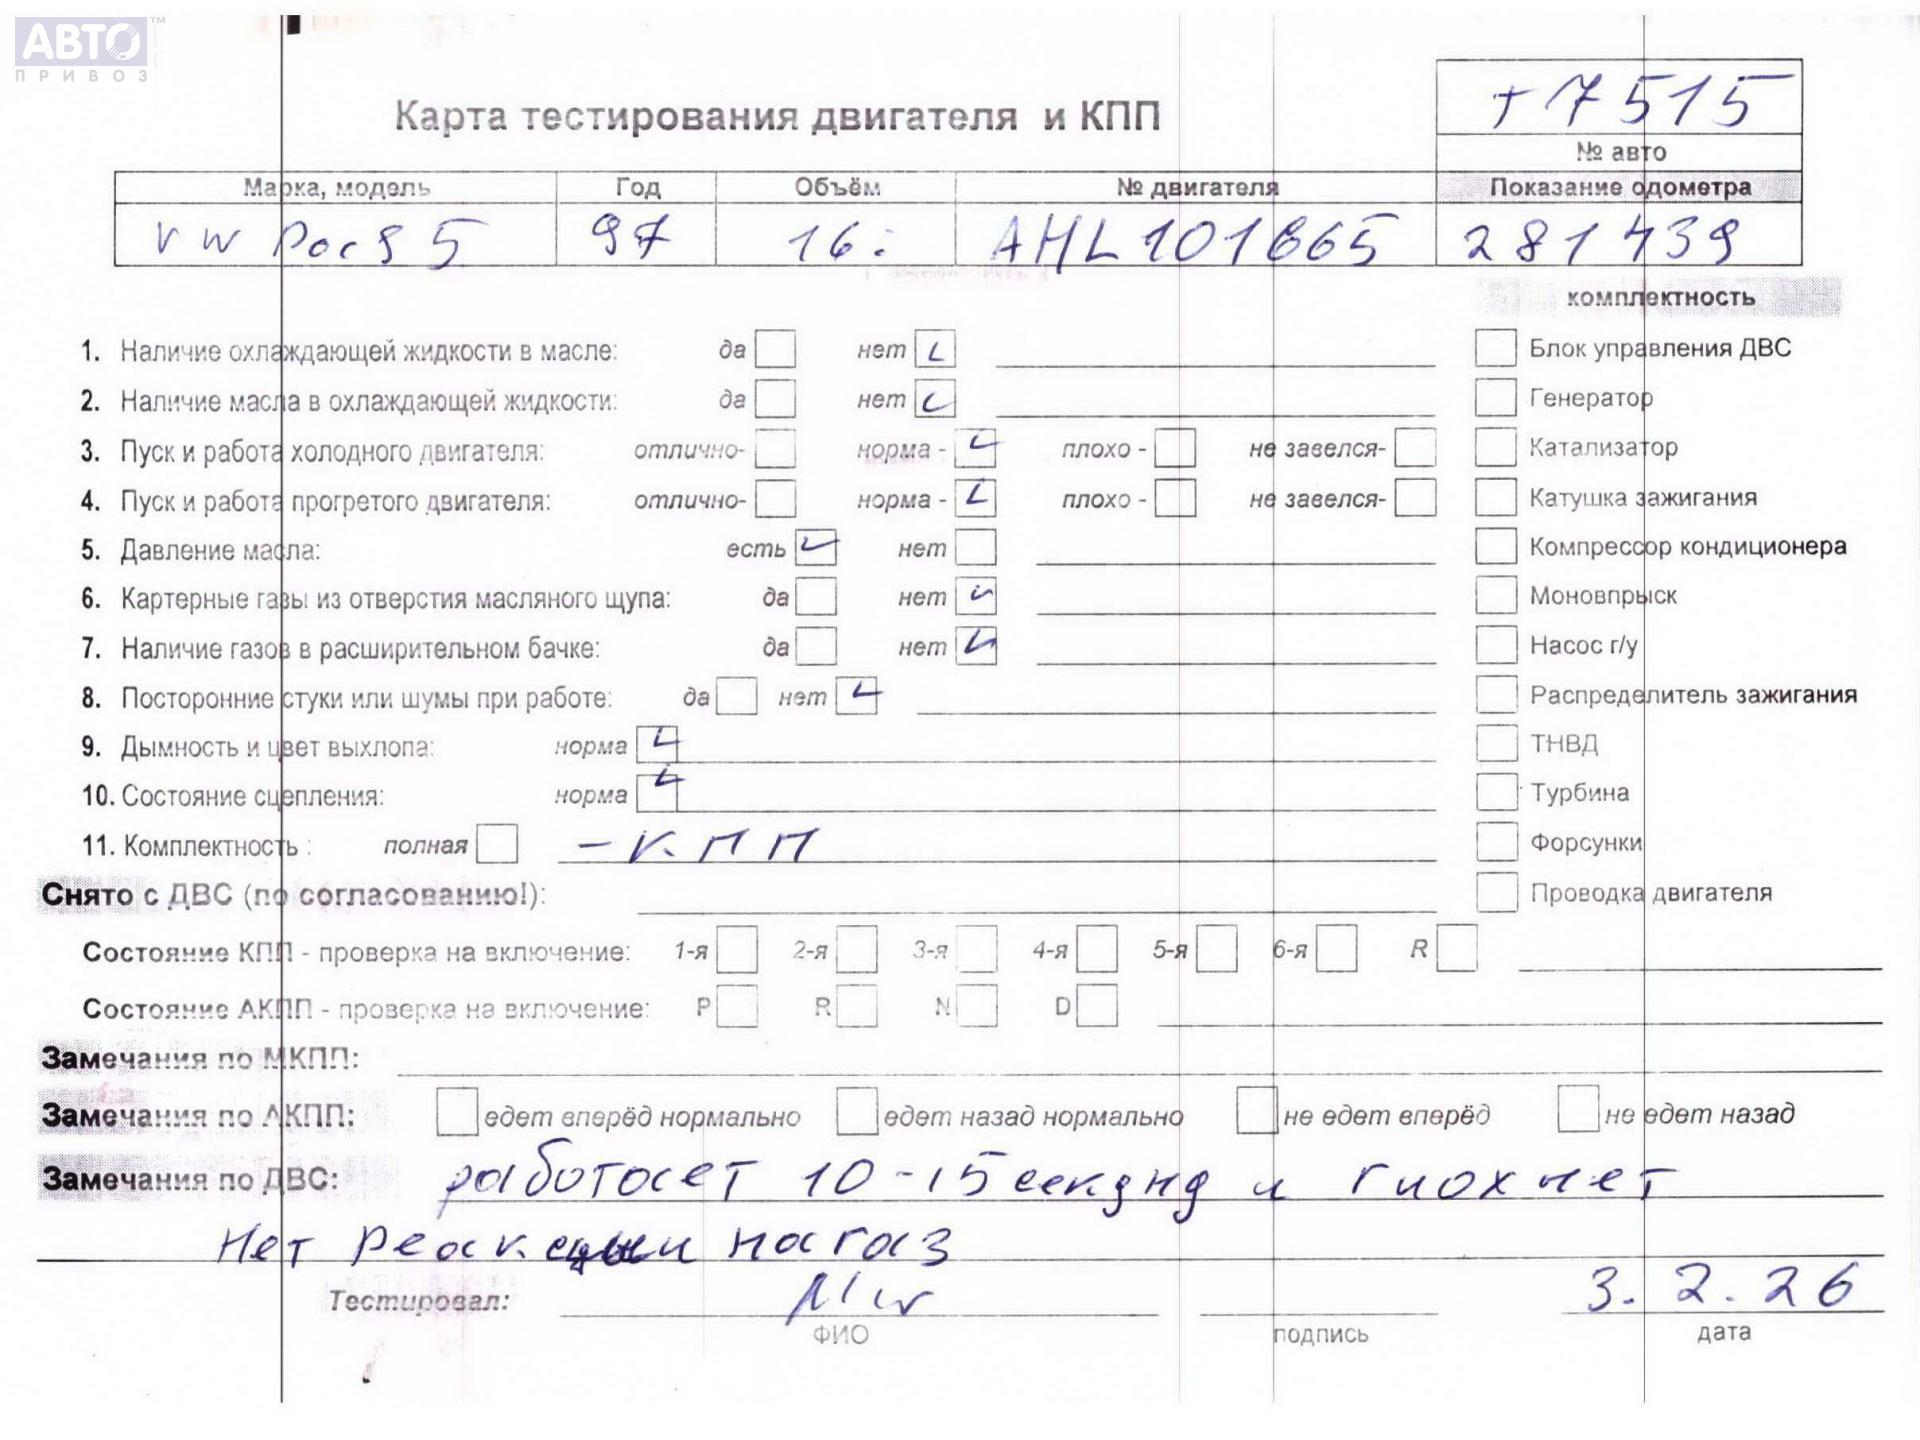 АВТО™
ПРИВОЗ
Карта тестирования двигателя и КПП
т7515
№ авто
Марка, модель Год Объём № двигателя Показание одометра
VW Pас§ 5 97 16i AHL101665 281439
комплектность
1. Наличие охлаждающей жидкости в масле: да нет Блок управления ДВС
2. Наличие масла в охлаждающей жидкости: да нет Генератор
3. Пуск и работа холодного двигателя: отлично- норма - плохо - не завелся- Катализатор
4. Пуск и работа прогретого двигателя: отлично- норма - плохо - не завелся- Катушка зажигания
5. Давление масла: есть нет Компрессор кондиционера
6. Картерные газы из отверстия масляного щупа: да нет Моновпрыск
7. Наличие газов в расширительном бачке: да нет Насос г/у
8. Посторонние стуки или шумы при работе: да нет Распределитель зажигания
9. Дымность и цвет выхлопа: норма ТНВД
10. Состояние сцепления: норма Турбина
11. Комплектность : полная - КПП Форсунки
Снято с ДВС (по согласованию!): Проводка двигателя
Состояние КПП - проверка на включение: 1-я 2-я 3-я 4-я 5-я 6-я R
Состояние АКПП - проверка на включение: P R N D
Замечания по МКПП:
Замечания по АКПП: едет вперёд нормально едет назад нормально не едет вперёд не едет назад
Замечания по ДВС: работает 10-15 секунд и глохнет
Нет реакции на газ
Тестировал: 3.2.26
ФИО подпись дата